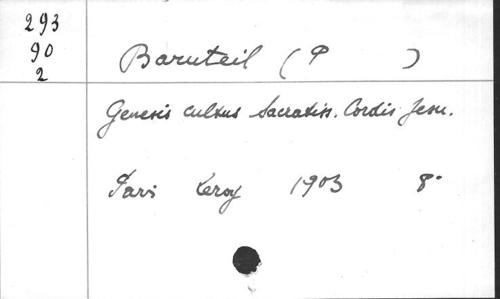 293
90
2
Baruteil (P )
Genesis cultus Sacratiss. Cordis Jesu.
Paris Leroy 1903 8°